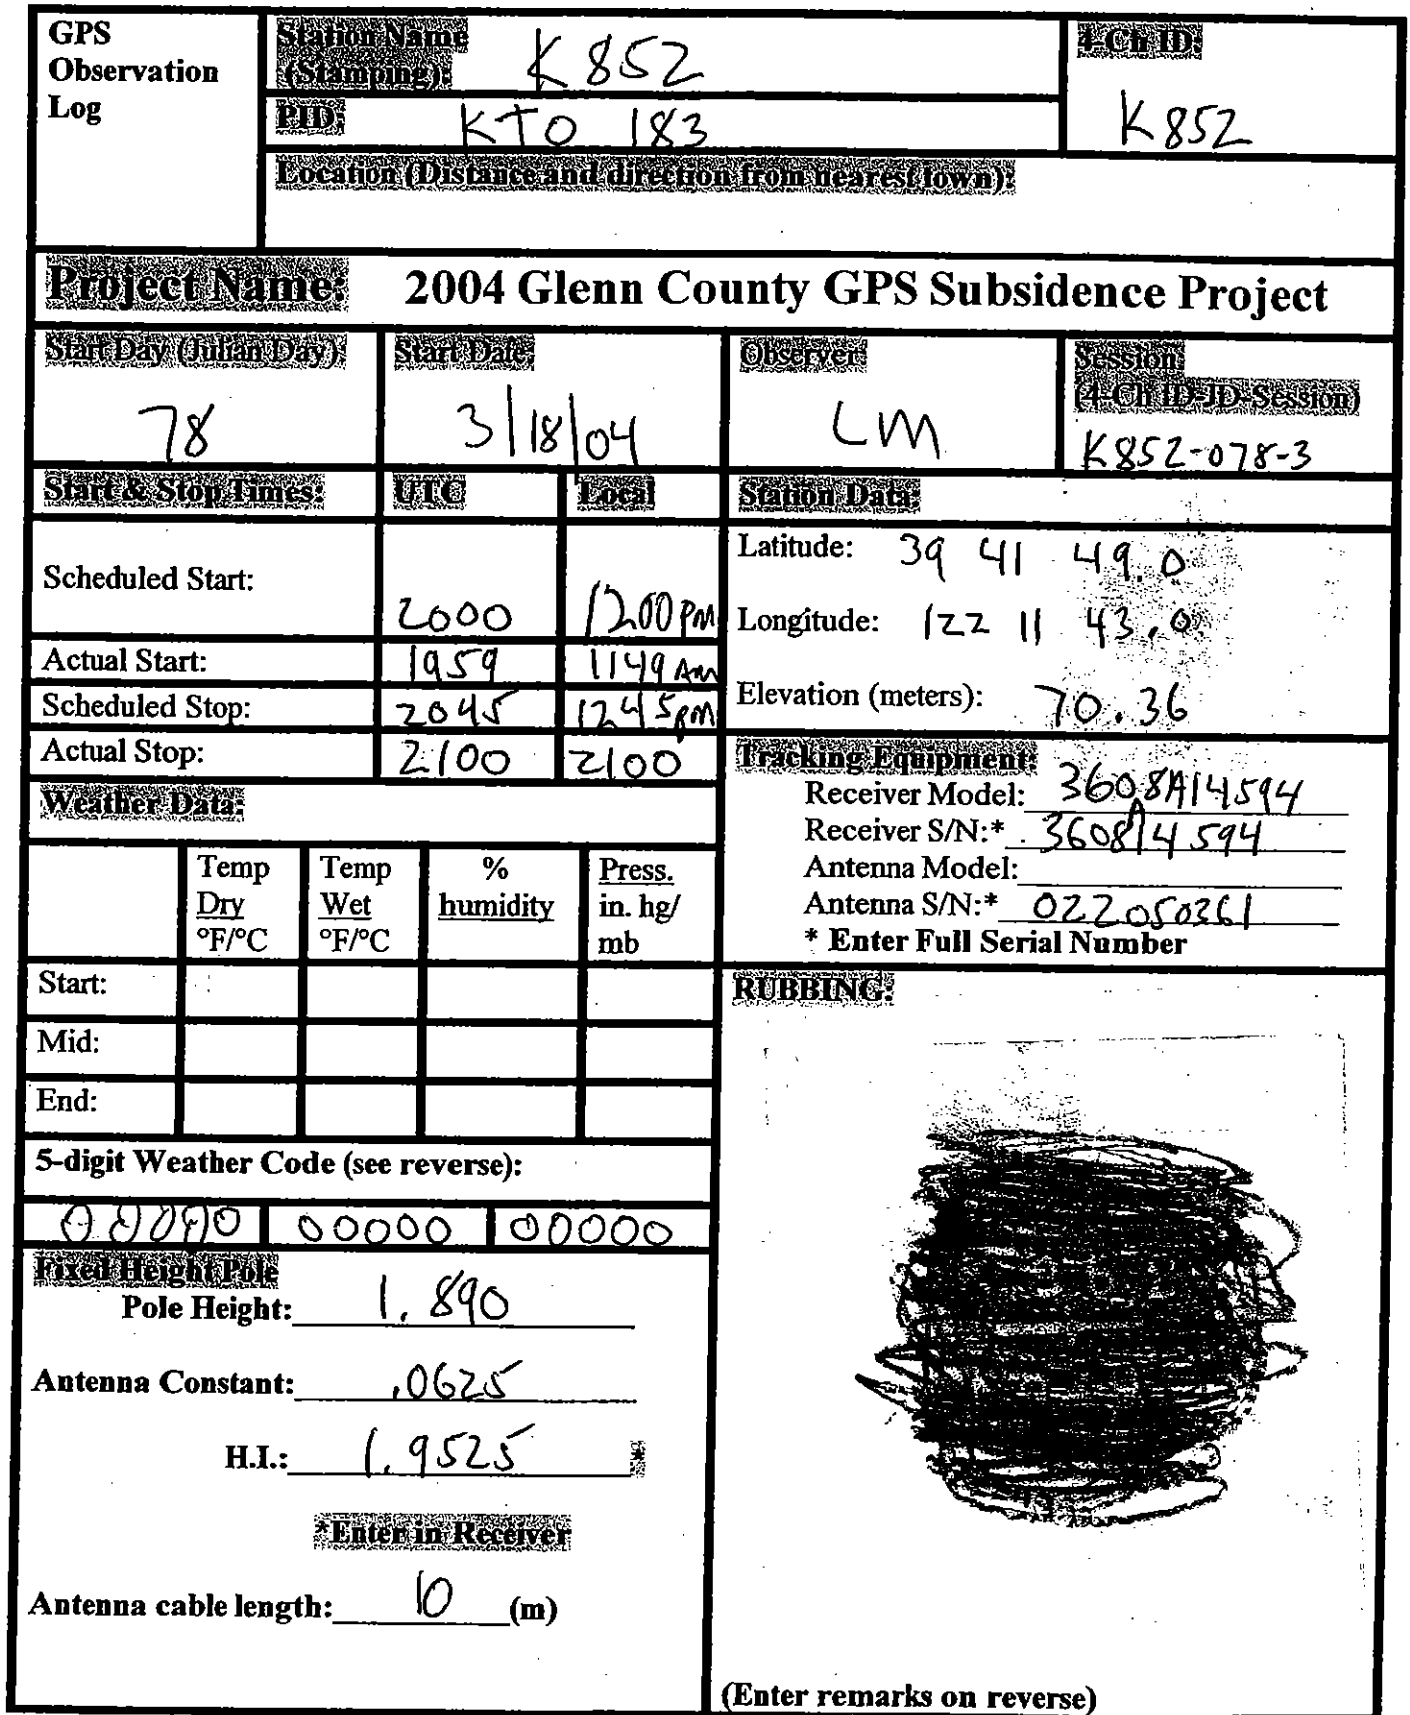 GPS
Observation
Log
Station Name
(Stamping): K852
4-Ch ID:
K852
PID: KTO 183
Location (Distance and direction from nearest town):
Project Name: 2004 Glenn County GPS Subsidence Project
Start Day (Julian Day)
78
Start Date:
3/18/04
Observer:
LM
Session:
(4-Ch ID-JD-Session)
K852-078-3
Start & Stop Times: UTC Local
Scheduled Start: 2000 1200 PM
Actual Start: 1959 1149 AM
Scheduled Stop: 2045 1245 PM
Actual Stop: 2100 2100
Station Data:
Latitude: 39 41 49.0
Longitude: 122 11 43.0
Elevation (meters): 70.36
Tracking Equipment:
Receiver Model: 3608A14594
Receiver S/N:* 3608A14594
Antenna Model:
Antenna S/N:* 022050361
* Enter Full Serial Number
Weather Data:
Temp Dry °F/°C
Temp Wet °F/°C
% humidity
Press. in. hg/ mb
Start:
Mid:
End:
5-digit Weather Code (see reverse):
00000 00000 00000
Fixed Height Pole
Pole Height: 1.890
Antenna Constant: .0625
H.I.: 1.9525 *
*Enter in Receiver
Antenna cable length: 10 (m)
RUBBING:
(Enter remarks on reverse)